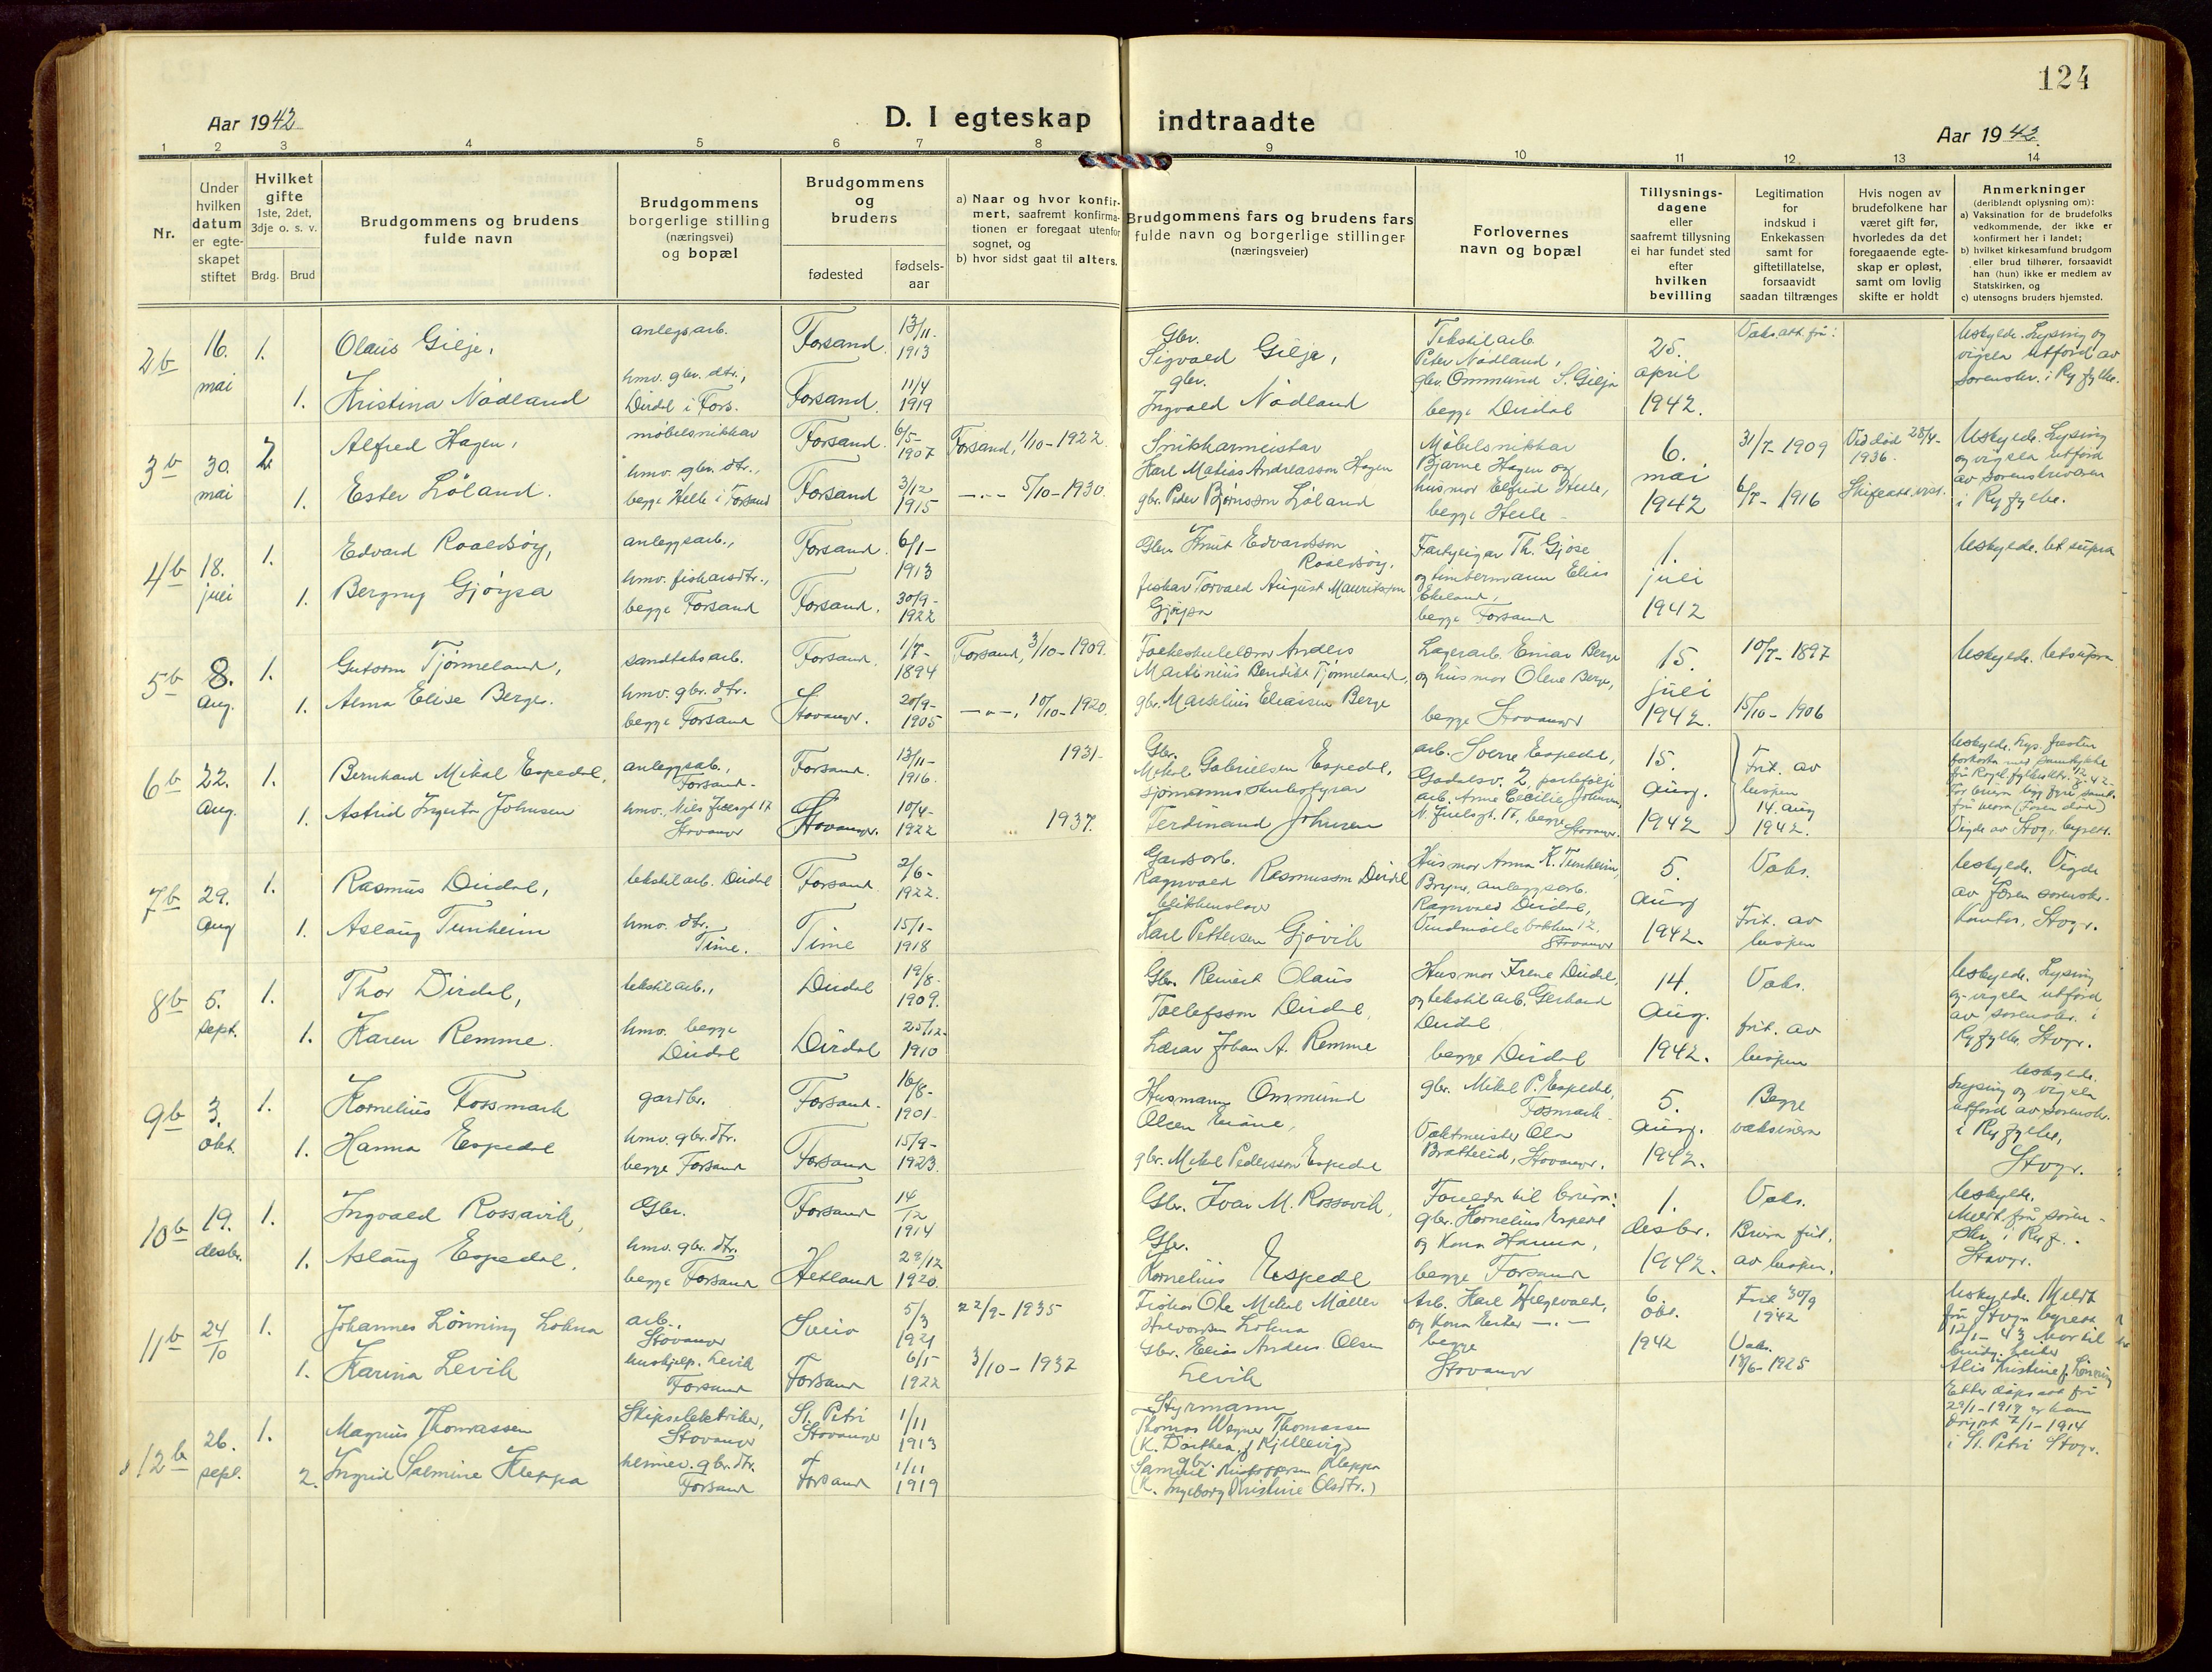 124
Aar 1942
D. I egteskap indtraadte
Aar 1942
1 2 3 4 5 6 7 8 9 10 11 12 13 14
Nr.
Under hvilken datum er egteskapet stiftet
Hvilket gifte 1ste, 2det, 3dje o. s. v.
Brdg. Brud
Brudgommens og brudens fulde navn
Brudgommens borgerlige stilling (næringsvei) og bopæl
Brudgommens og brudens
fødested
fødsels-aar
a) Naar og hvor konfirmert, saafremt konfirmationen er foregaat utenfor sognet, og
b) hvor sidst gaat til alters.
Brudgommens fars og brudens fars fulde navn og borgerlige stillinger (næringsveier)
Forlovernes navn og bopæl
Tillysningsdagene eller saafremt tillysning ei har fundet sted efter hvilken bevilling
Legitimation for indskud i Enkekassen samt for giftetillatelse, forsaavidt saadan tiltrænges
Hvis nogen av brudefolkene har været gift før, hvorledes da det foregaaende egteskap er opløst, samt om lovlig skifte er holdt
Anmerkninger (deriblandt oplysning om):
a) Vaksination for de brudefolks vedkommende, der ikke er konfirmert her i landet;
b) hvilket kirkesamfund brudgom eller brud tilhører, forsaavidt han (hun) ikke er medlem av Statskirken, og
c) utensogns bruders hjemsted.
2b 16. mai 1. Olaus Gilje, anlegsarb. Forsand 13/11 1913
1. Kristina Nådland hmv. gbr. dtr., Dirdal i Fors. Forsand 11/4 1919
Gbr. Sigvald Gilje,
gbr. Ingvald Nådland
Tekstilarb. Peter Nådland, gbr. Ommund S. Gilje begge Dirdal
25. april 1942.
Uskylde. Lysing og vigsla utförd av sorenskr. i Ryfylke.
3b 30. mai 2 Alfred Hagen, møbelsnikkar Forsand 6/5 1907 Forsand, 1/10-1922.
1. Ester Löland. hmv. gbr. dtr., begge Helle i Forsand Forsand 3/12 1915 -"- 5/10-1930.
Snikkarmeistar Karl Matias Andreasson Hagen
gbr. Peder Bjørnsson Löland
Møbelsnikkar Bjarne Hagen og husmor Elfrid Helle, begge Helle
6. mai 1942
31/7-1909
6/7-1916
Ved död 28/4-1936.
Uskylde. Lysing og vigsla utförd av sorenskrivaren i Ryfylke.
4b 18. juli 1. Edvard Roaldsöy, anleggsarb., Forsand 6/1-1913
1. Bergny Gjöysa hmv. fiskarsdtr., begge Forsand Forsand. 30/9-1922
Gbr. Knut Edvardsson Roaldsöy,
fiskar Torvald August Mauritsson Gjöysa
Fartyeigar Th. Gjöse og timbermann Elias Ekeland, begge Forsand
1. juli 1942
Uskylde. Ut supra
5b 8. aug. 1. Gutorm Tjörmeland, sandtaksarb. Forsand. 1/7-1894 Forsand, 3/10-1909.
1. Alma Elise Berge. hmv. gbr. dtr. begge Forsand Stavanger. 20/9-1905 -"-, 10/10-1920.
Folkeskulelærar Anders Martinius Bendikt Tjörmeland,
gbr. Markelius Eliassen Berge
Lagerarb. Einar Berge og husmor Olene Berge, begge Stavanger
15. juli 1942.
10/7-1897
15/10-1906
Uskylde. Ut supra
6b 22. aug. 1. Bernhard Mikal Espedal, anleggsarb., Forsand. Forsand. 13/11-1916. 1931.
1. Astrid Ingerta Johnsen hmv. Niels Juelsgt 17 Stavanger Stavanger. 10/4-1922 1937.
Gbr. Mikal Gabrielsen Espedal,
sjömannsskulestyrar Ferdinand Johnsen
arb. Sverre Espedal, Godalsv. 2, arb. Anne Cecilie Johnsen, N. Juelsgt. 17, begge Stavanger.
15. aug. 1942
Frit. av bispen 14. aug 1942.
Uskylde. Vigde av Stvgr. byrett.
7b 29. aug 1. Rasmus Dirdal, tekstilarb. Dirdal Forsand 2/6-1922.
1. Aslaug Tunheim hmv. dtr. Time. Time 15/1-1918
Gardsarb. Ragnvald Rasmusson Dirdal
blikkenslager Karl Pettersen Gjövik
Husmor Anna K. Tunheim, Bryne, anleggsarb. Ragnvald Dirdal, Vindmöllebakken 12. Stavanger
5. aug 1942.
Vaks.
Frit. av bispen
Uskylde. Vigde av Jæren sorenskr. kontor, Stvgr.
8b 5. sept. 1. Thor Dirdal, tekstilarb., Dirdal 19/8-1909.
1. Karen Remme. hmv. begge Dirdal Dirdal 25/12-1910
Gbr. Reinert Olaus Toelefsson Dirdal,
Lærar Johan A. Remme
Husmor Irene Dirdal, og tekstilarb. Gerhard Dirdal begge Dirdal
14. aug. 1942.
Vaks.
frit. av bispen
Uskylde. Lysing og vigsla utförd av sorenskr. i Ryfylke. Stvgr.
9b 3. okt. 1. Kornelius Fossmark gardbr. Forsand. 16/8-1901
1. Hanna Espedal hmv. gbr. dtr. begge Forsand Forsand 15/9-1923.
Husmann Ommund Olsen Eiane,
gbr. Mikal Pedersson Espedal
gbr. Mikal P. Espedal, Fosmark. Vaktmeister Ola Bratteid, Stavanger.
5. aug. 1942.
Begge vaksinera
Uskylde. Lysing og vigsla utförd av sorenskr. i Ryfylke, Stvgr.
10b 19. desbr. 1. Ingvald Rossavik, Gbr. Forsand 14/12 1914
1. Aslaug Espedal. hmv. gbr. dtr. begge Forsand Hetland 29/12 1920.
Gbr. Ivar M. Rossavik,
Gbr. Kornelius Espedal
Foreldra til brura: gbr. Kornelius Espedal og kona Hanna, begge Forsand
1. desbr. 1942.
Vaks. Brura frit. av bispen.
Uskylde. Meldt frå sorenskr. i Ryf. Stavgr.
11b 24/10 1. Johannes Lönning Lokna arb., Stavanger Sveio 5/3 1921 22/9-1935
1. Karina Levik hushjelp. Levik Forsand Forsand 6/5 1922 3/10-1937
Fiskar Ole Mikal Måller Halvorsen Lokna
Gbr. Elias Anders Olsen Levik
Arb. Karl og kona Ester -"- begge Stavanger
6. okt. 1942
Frit 30/9 1942
Vaks. 18/6-1925
Uskylde. Meldt frå Stvgr byrett 12/1-43. Mor til brudg. heiter Alis Kristine f. Lönning
12b 26. sept. 1. Magnus Thomassen Skipselektriker, Stavanger St. Petri Stavanger 1/11 1913
2. Ingrid Salmine Kleppa heimev. gbr. dtr. Forsand Forsand 1/11 1919
Styrmann Thomas Wegner Thomassen (K. Dorthea f. Kjellevig)
gbr. Samuel Kristoffersen Kleppa (K. Ingeborg Kristine Olsdtr.)
Etter dåpsatt frå 29/1-1914 er han döypt 7/1-1914 i St. Petri Stvgr.